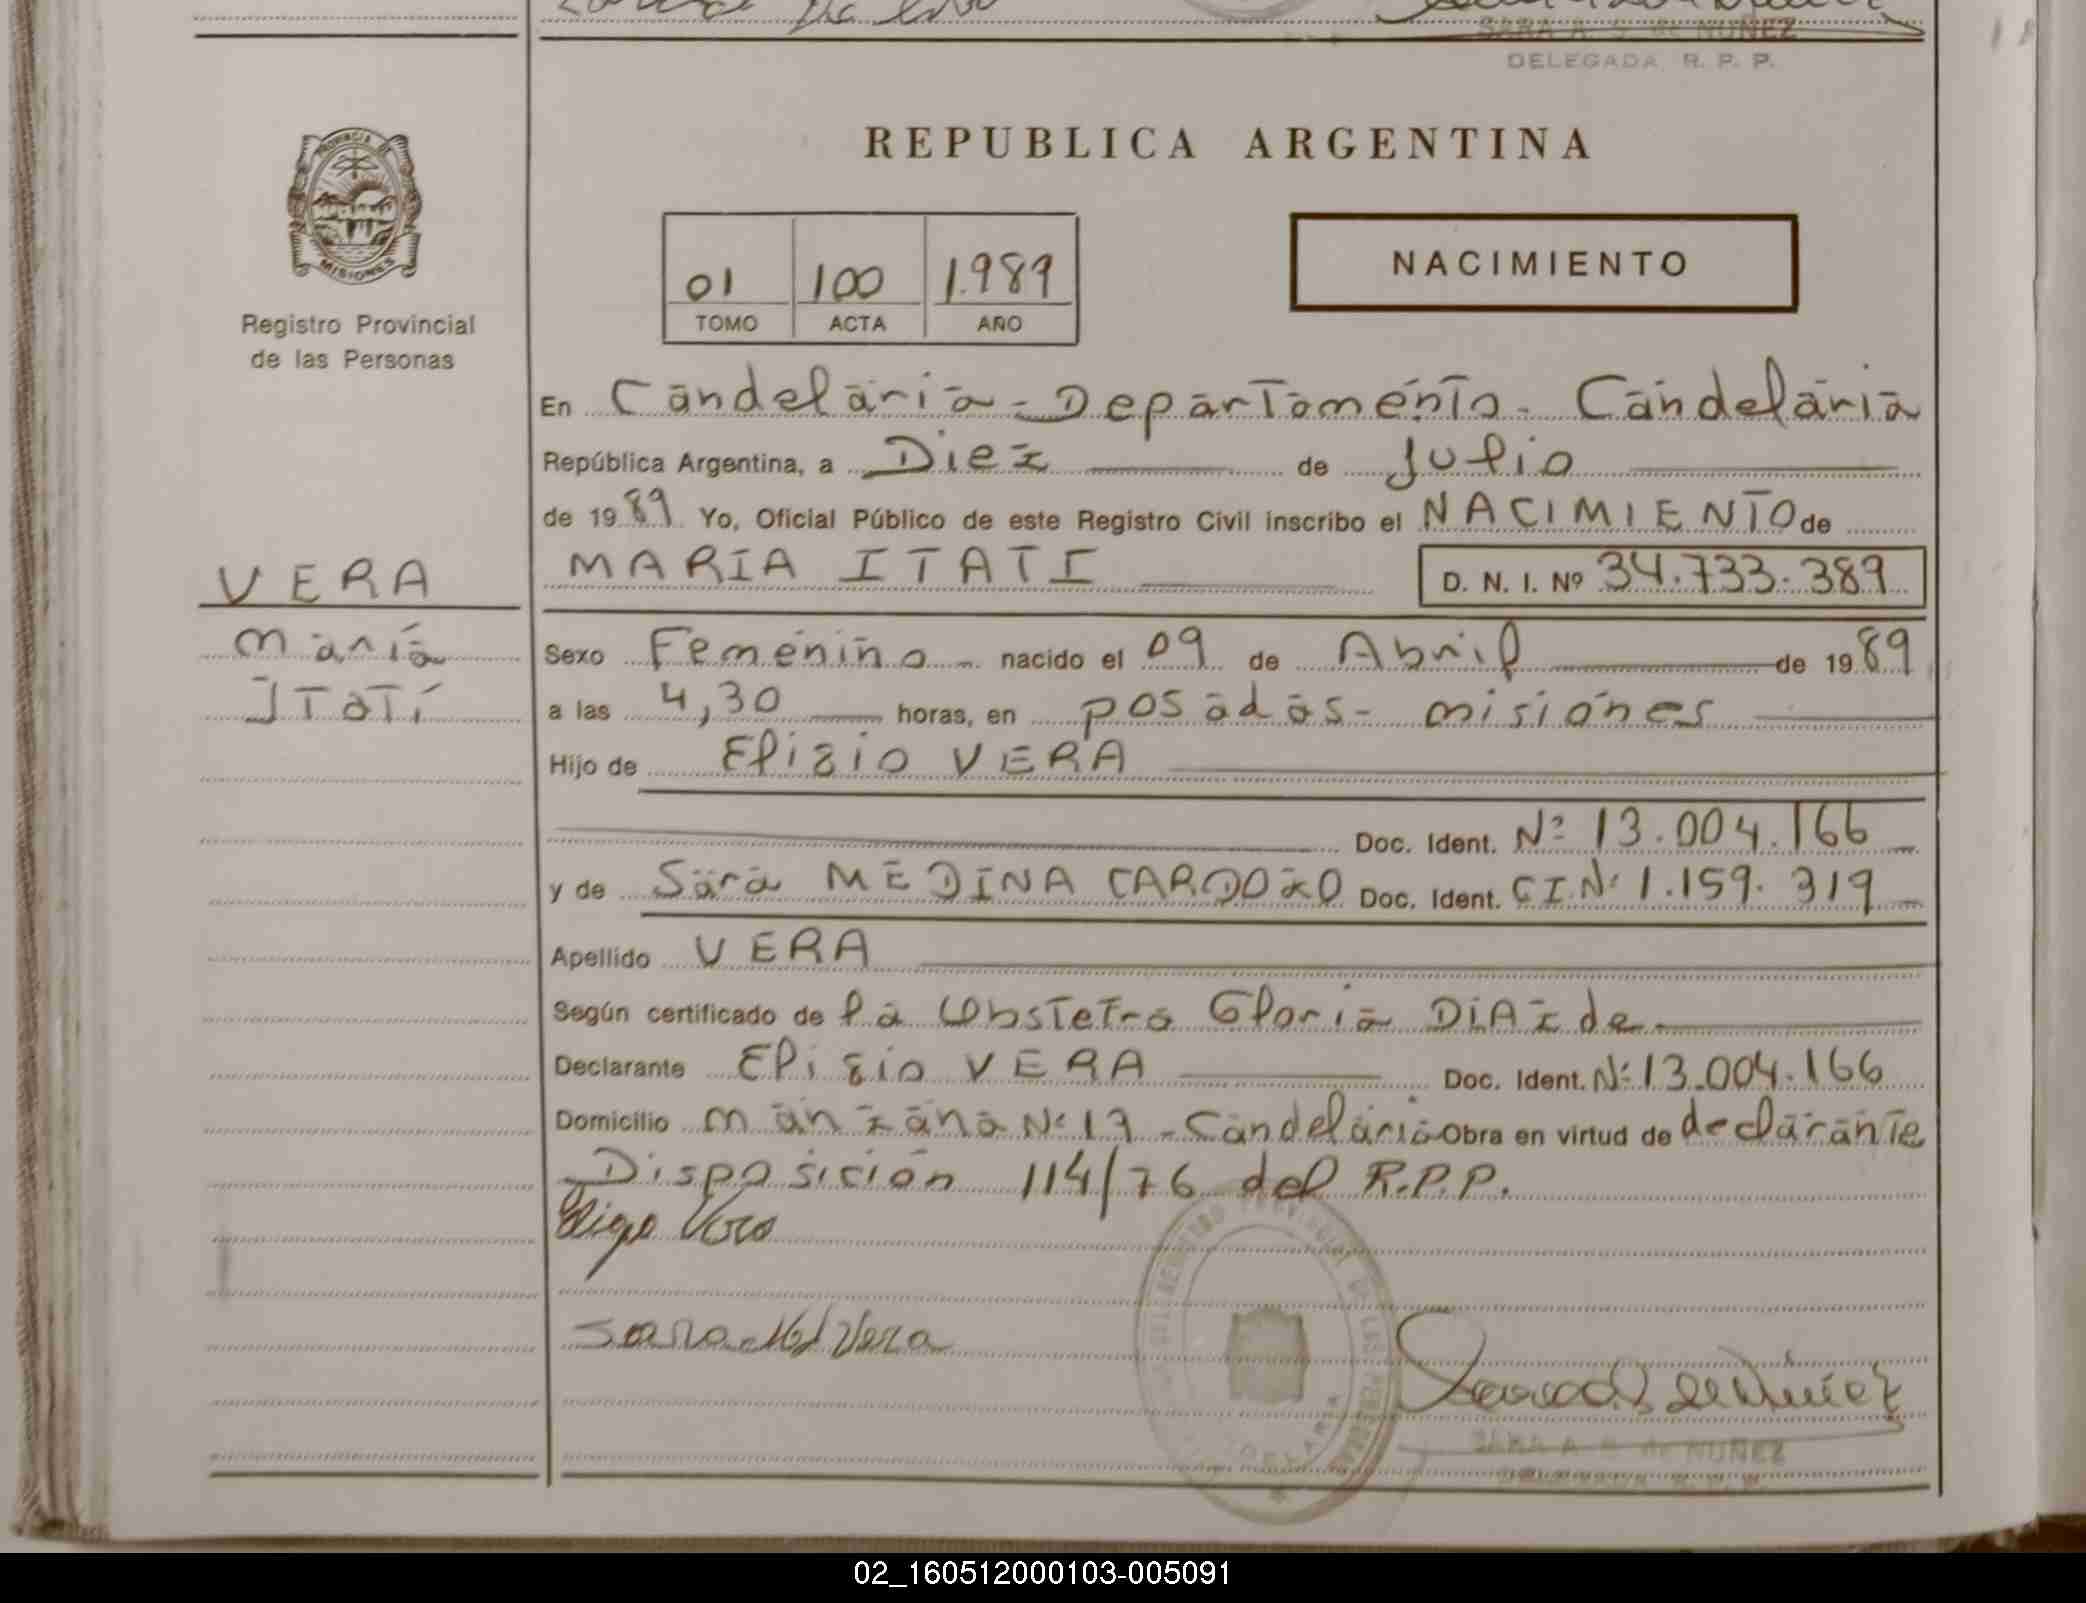 SARA A. S. de NUÑEZ
DELEGADA R. P. P.
PROVINCIA DE
MISIONES
Registro Provincial
de las Personas
REPUBLICA ARGENTINA
01 100 1.989
TOMO ACTA AÑO
NACIMIENTO
En Candelaria - Departamento - Candelaria
República Argentina, a Diez de Julio
de 1989 Yo, Oficial Público de este Registro Civil inscribo el NACIMIENTO de
MARIA ITATI D. N. I. Nº 34.733.389
VERA
María
Itatí
Sexo Femenino nacido el 09 de Abril de 1989
a las 4,30 horas, en posadas - misiones
Hijo de Eligio VERA
Doc. Ident. Nº 13.004.166
y de Sara MEDINA CARDOZO Doc. Ident. C.I.Nº 1.159.319
Apellido VERA
Según certificado de la Obstetra Gloria DIAZ de
Declarante Eligio VERA Doc. Ident. Nº 13.004.166
Domicilio manzana Nº 17 - Candelaria Obra en virtud de declarante
Disposición 114/76 del R.P.P.
Eligio Vera
Sara M d Vera
SARA A. S. de NUÑEZ
DELEGADA R. P. P.
02_160512000103-005091